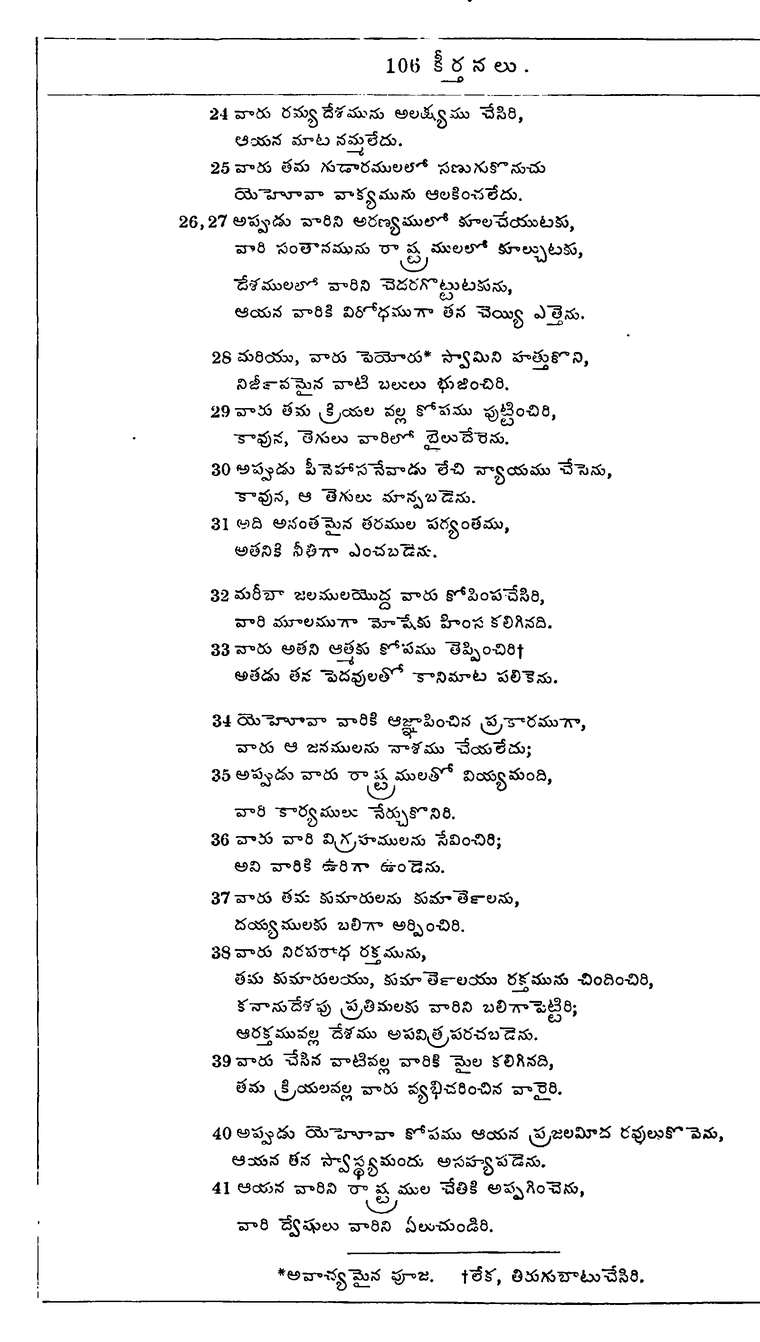 106 కీర్తనలు.
24 వారు రమ్యదేశమును అలక్ష్యము చేసిరి,
ఆయన మాట నమ్మలేదు.
25 వారు తమ గుడారములలో సణుగుకొనుచు
యెహోవా వాక్యమును ఆలకించలేదు.
26, 27 అప్పుడు వారిని అరణ్యములో కూలచేయుటకు,
వారి సంతానమును రాష్ట్రములలో కూల్చుటకు,
దేశములలో వారిని చెదరగొట్టుటకును,
ఆయన వారికి విరోధముగా తన చెయ్యి ఎత్తెను.
28 మరియు, వారు పెయోరు* స్వామిని హత్తుకొని,
నిర్జీవమైన వాటి బలులు భుజించిరి.
29 వారు తమ క్రియల వల్ల కోపము పుట్టించిరి,
కావున, తెగులు వారిలో బైలుదేరెను.
30 అప్పుడు పీనెహాసనేవాడు లేచి న్యాయము చేసెను,
కావున, ఆ తెగులు మాన్పబడెను.
31 అది అనంతమైన తరముల పర్యంతము,
అతనికి నీతిగా ఎంచబడెను.
32 మరీబా జలములయొద్ద వారు కోపింపచేసిరి,
వారి మూలముగా మోషేకు హింస కలిగినది.
33 వారు అతని ఆత్మకు కోపము తెప్పించిరి†
అతడు తన పెదవులతో కానిమాట పలికెను.
34 యెహోవా వారికి ఆజ్ఞాపించిన ప్రకారముగా,
వారు ఆ జనములను నాశము చేయలేదు;
35 అప్పుడు వారు రాష్ట్రములతో వియ్యమంది,
వారి కార్యములు నేర్చుకొనిరి.
36 వారు వారి విగ్రహములను సేవించిరి;
అవి వారికి ఉరిగా ఉండెను.
37 వారు తమ కుమారులను కుమార్తెలను,
దయ్యములకు బలిగా అర్పించిరి.
38 వారు నిరపరాధ రక్తమును,
తమ కుమారులయు, కుమార్తెలయు రక్తమును చిందించిరి,
కనానుదేశపు ప్రతిమలకు వారిని బలిగాపెట్టిరి;
ఆరక్తమువల్ల దేశము అపవిత్రపరచబడెను.
39 వారు చేసిన వాటివల్ల వారికి మైల కలిగినది,
తమ క్రియలవల్ల వారు వ్యభిచరించిన వారైరి.
40 అప్పుడు యెహోవా కోపము ఆయన ప్రజలమీద రవులుకొనెను,
ఆయన తన స్వాస్థ్యమందు అసహ్యపడెను.
41 ఆయన వారిని రాష్ట్రముల చేతికి అప్పగించెను,
వారి ద్వేషులు వారిని ఏలుచుండిరి.
*అవాచ్యమైన పూజ. †లేక, తిరుగుబాటుచేసిరి.